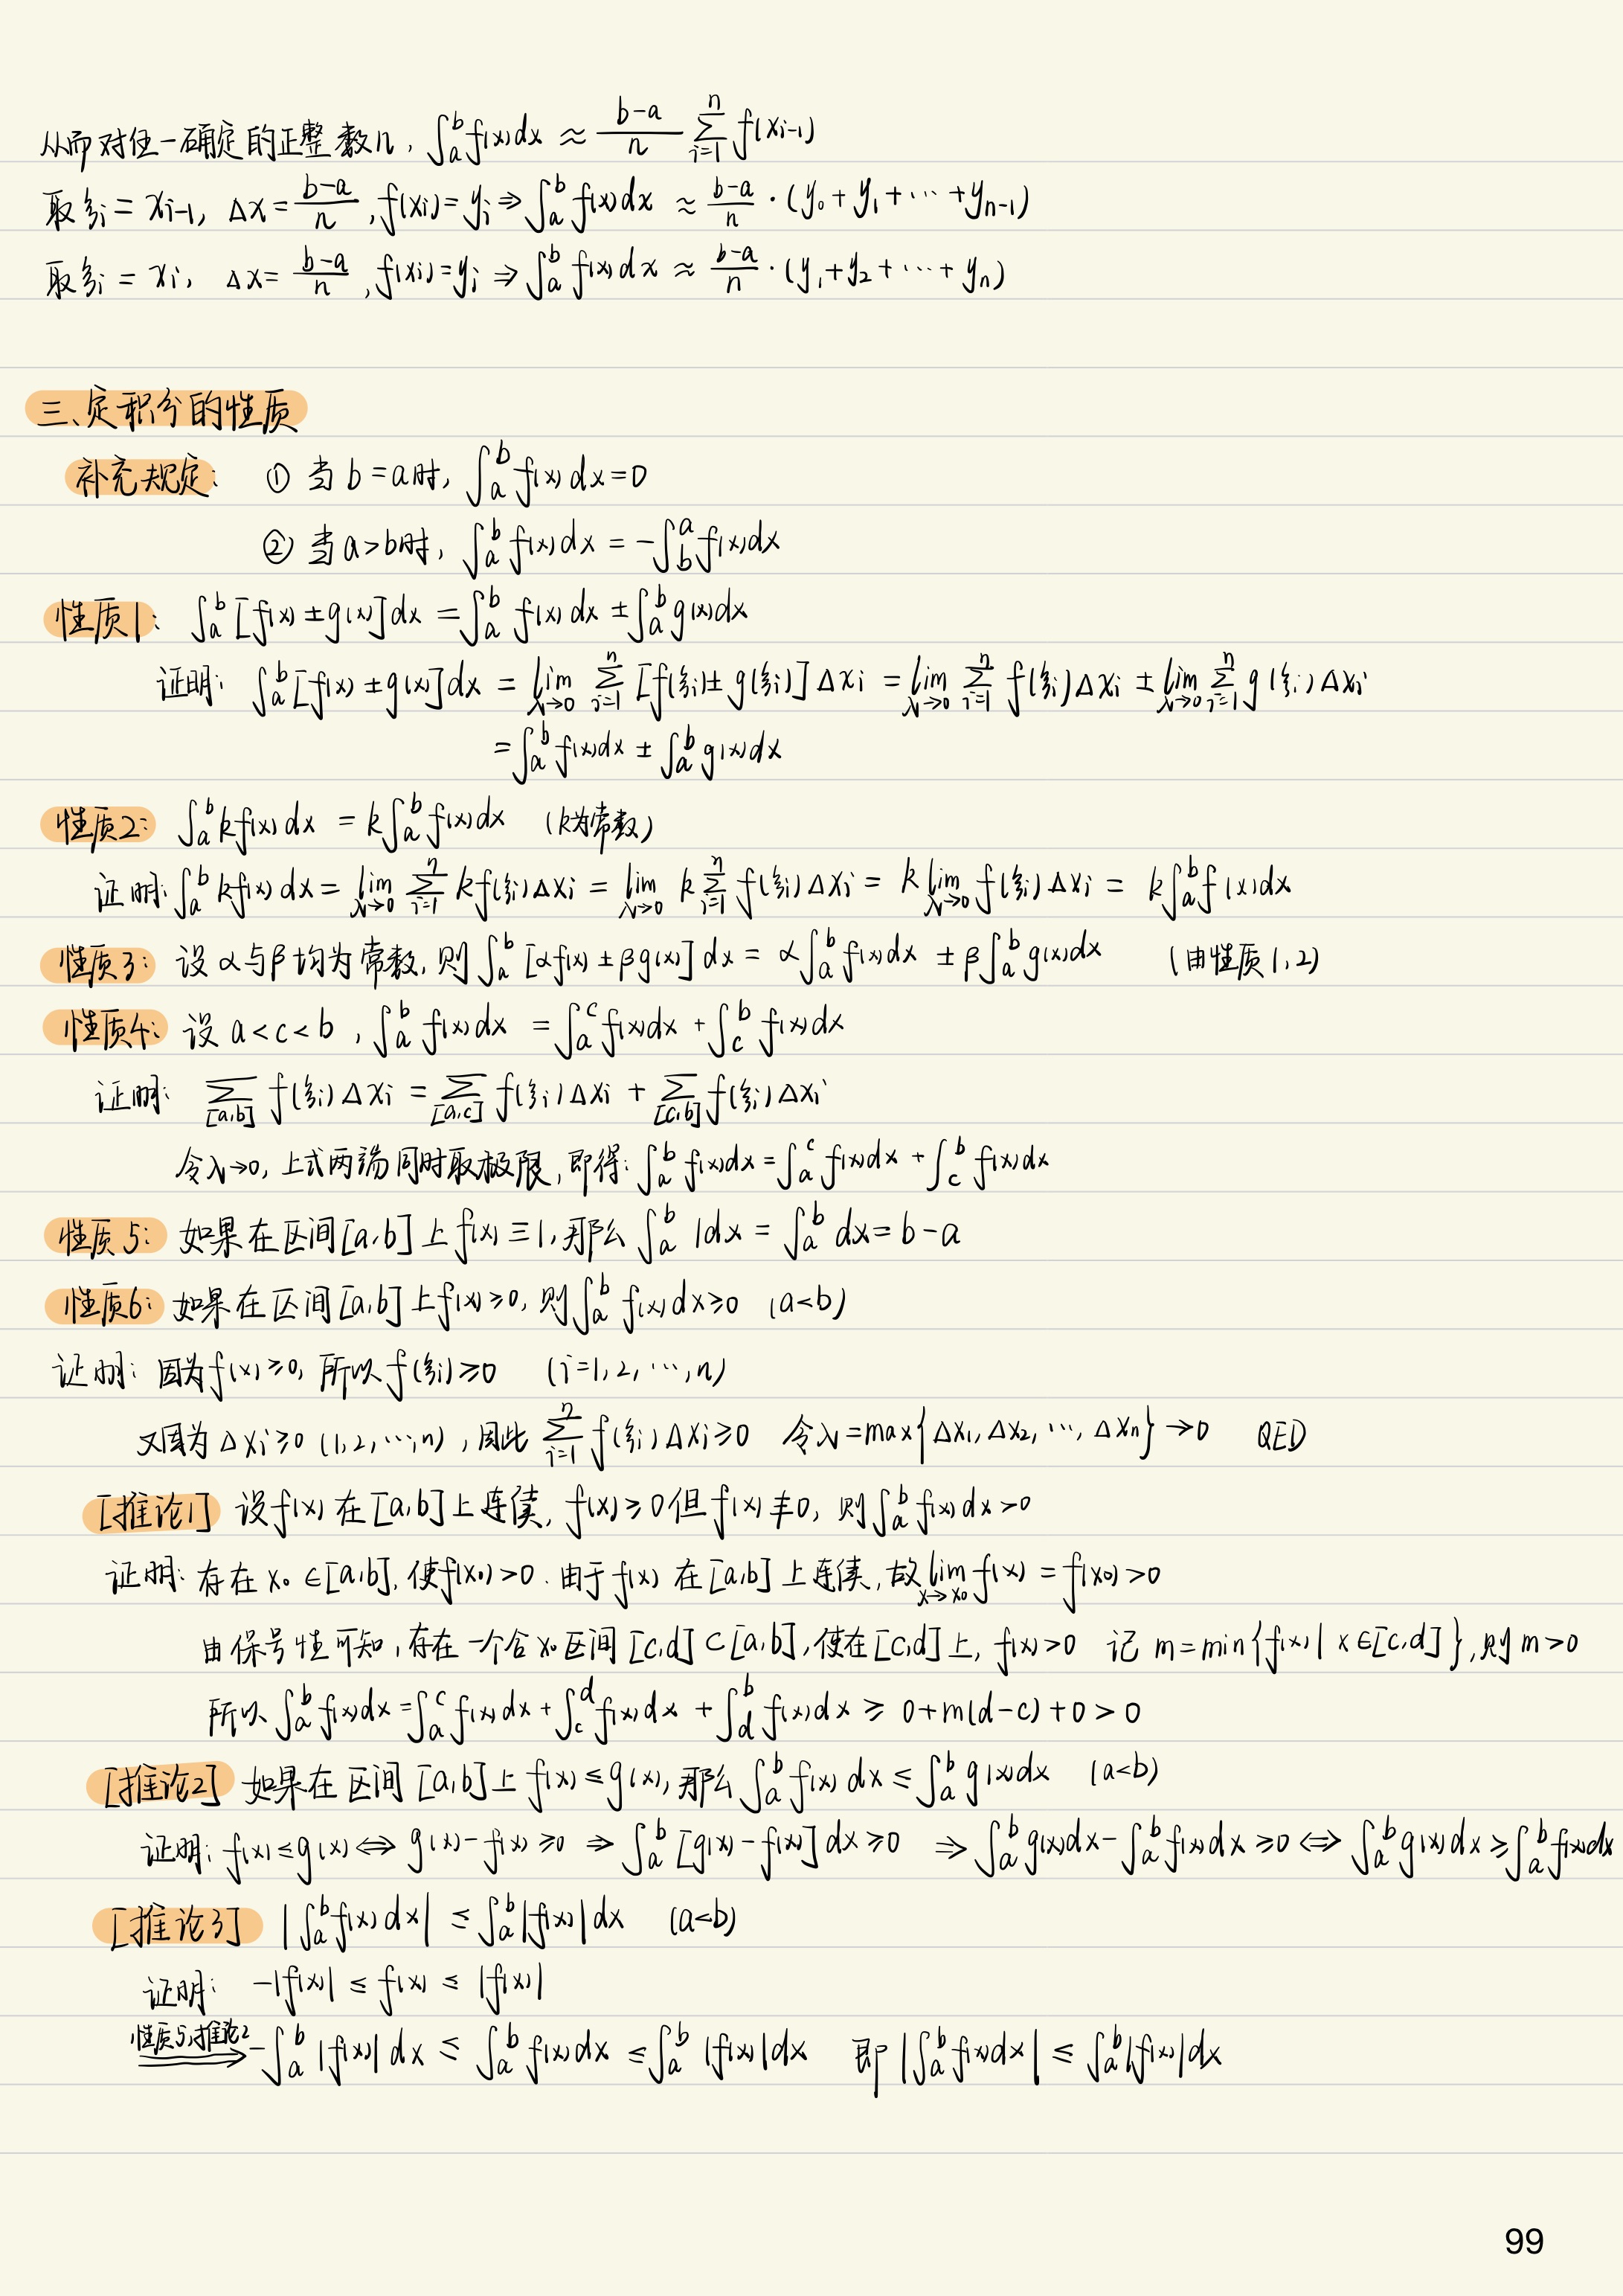 从而对任一确定的正整数n, ∫_a^b f(x)dx ≈ (b-a)/n ∑_{i=1}^n f(x_{i-1})
取ξi = x_{i-1}, Δx = (b-a)/n, f(xi) = yi ⇒ ∫_a^b f(x)dx ≈ (b-a)/n · (y₀ + y₁ + ⋯ + y_{n-1})
取ξi = xi, Δx = (b-a)/n, f(xi) = yi ⇒ ∫_a^b f(x)dx ≈ (b-a)/n · (y₁ + y₂ + ⋯ + yn)
三、定积分的性质
补充规定: ① 当 b = a时, ∫_a^b f(x)dx = 0
② 当 a > b时, ∫_a^b f(x)dx = -∫_b^a f(x)dx
性质1: ∫_a^b [f(x) ± g(x)]dx = ∫_a^b f(x)dx ± ∫_a^b g(x)dx
证明: ∫_a^b [f(x) ± g(x)]dx = lim_{λ→0} ∑_{i=1}^n [f(ξi) ± g(ξi)]Δxi = lim_{λ→0} ∑_{i=1}^n f(ξi)Δxi ± lim_{λ→0} ∑_{i=1}^n g(ξi)Δxi
= ∫_a^b f(x)dx ± ∫_a^b g(x)dx
性质2: ∫_a^b kf(x)dx = k∫_a^b f(x)dx (k为常数)
证明: ∫_a^b kf(x)dx = lim_{λ→0} ∑_{i=1}^n kf(ξi)Δxi = lim_{λ→0} k∑_{i=1}^n f(ξi)Δxi = k lim_{λ→0} f(ξi)Δxi = k∫_a^b f(x)dx
性质3: 设 α与β均为常数, 则 ∫_a^b [αf(x) ± βg(x)]dx = α∫_a^b f(x)dx ± β∫_a^b g(x)dx (由性质1,2)
性质4: 设 a < c < b, ∫_a^b f(x)dx = ∫_a^c f(x)dx + ∫_c^b f(x)dx
证明: ∑_{[a,b]} f(ξi)Δxi = ∑_{[a,c]} f(ξi)Δxi + ∑_{[c,b]} f(ξi)Δxi
令λ→0, 上式两端同时取极限, 即得: ∫_a^b f(x)dx = ∫_a^c f(x)dx + ∫_c^b f(x)dx
性质5: 如果在区间[a,b]上f(x) ≡ 1, 那么 ∫_a^b 1dx = ∫_a^b dx = b - a
性质6: 如果在区间[a,b]上f(x) ≥ 0, 则∫_a^b f(x)dx ≥ 0 (a<b)
证明: 因为f(x) ≥ 0, 所以f(ξi) ≥ 0 (i=1,2,⋯,n)
又因为Δxi ≥ 0 (1,2,⋯,n), 因此 ∑_{i=1}^n f(ξi)Δxi ≥ 0 令λ = max{Δx₁, Δx₂, ⋯, Δxn} → 0 QED
[推论1] 设f(x) 在[a,b]上连续, f(x) ≥ 0但f(x) ≢ 0, 则∫_a^b f(x)dx > 0
证明: 存在 x₀ ∈ [a,b], 使f(x₀) > 0. 由于f(x) 在[a,b]上连续, 故 lim_{x→x₀} f(x) = f(x₀) > 0
由保号性可知, 存在一个含x₀区间 [c,d] ⊂ [a,b], 使在[c,d]上, f(x) > 0 记 m = min{f(x) | x ∈ [c,d]}, 则 m > 0
所以 ∫_a^b f(x)dx = ∫_a^c f(x)dx + ∫_c^d f(x)dx + ∫_d^b f(x)dx ≥ 0 + m(d-c) + 0 > 0
[推论2] 如果在区间 [a,b]上 f(x) ≤ g(x), 那么 ∫_a^b f(x)dx ≤ ∫_a^b g(x)dx (a<b)
证明: f(x) ≤ g(x) ⇔ g(x) - f(x) ≥ 0 ⇒ ∫_a^b [g(x) - f(x)]dx ≥ 0 ⇒ ∫_a^b g(x)dx - ∫_a^b f(x)dx ≥ 0 ⇔ ∫_a^b g(x)dx ≥ ∫_a^b f(x)dx
[推论3] |∫_a^b f(x)dx| ≤ ∫_a^b |f(x)|dx (a<b)
证明: -|f(x)| ≤ f(x) ≤ |f(x)|
性质5,推论2 ⇒ -∫_a^b |f(x)|dx ≤ ∫_a^b f(x)dx ≤ ∫_a^b |f(x)|dx 即 |∫_a^b f(x)dx| ≤ ∫_a^b |f(x)|dx
99